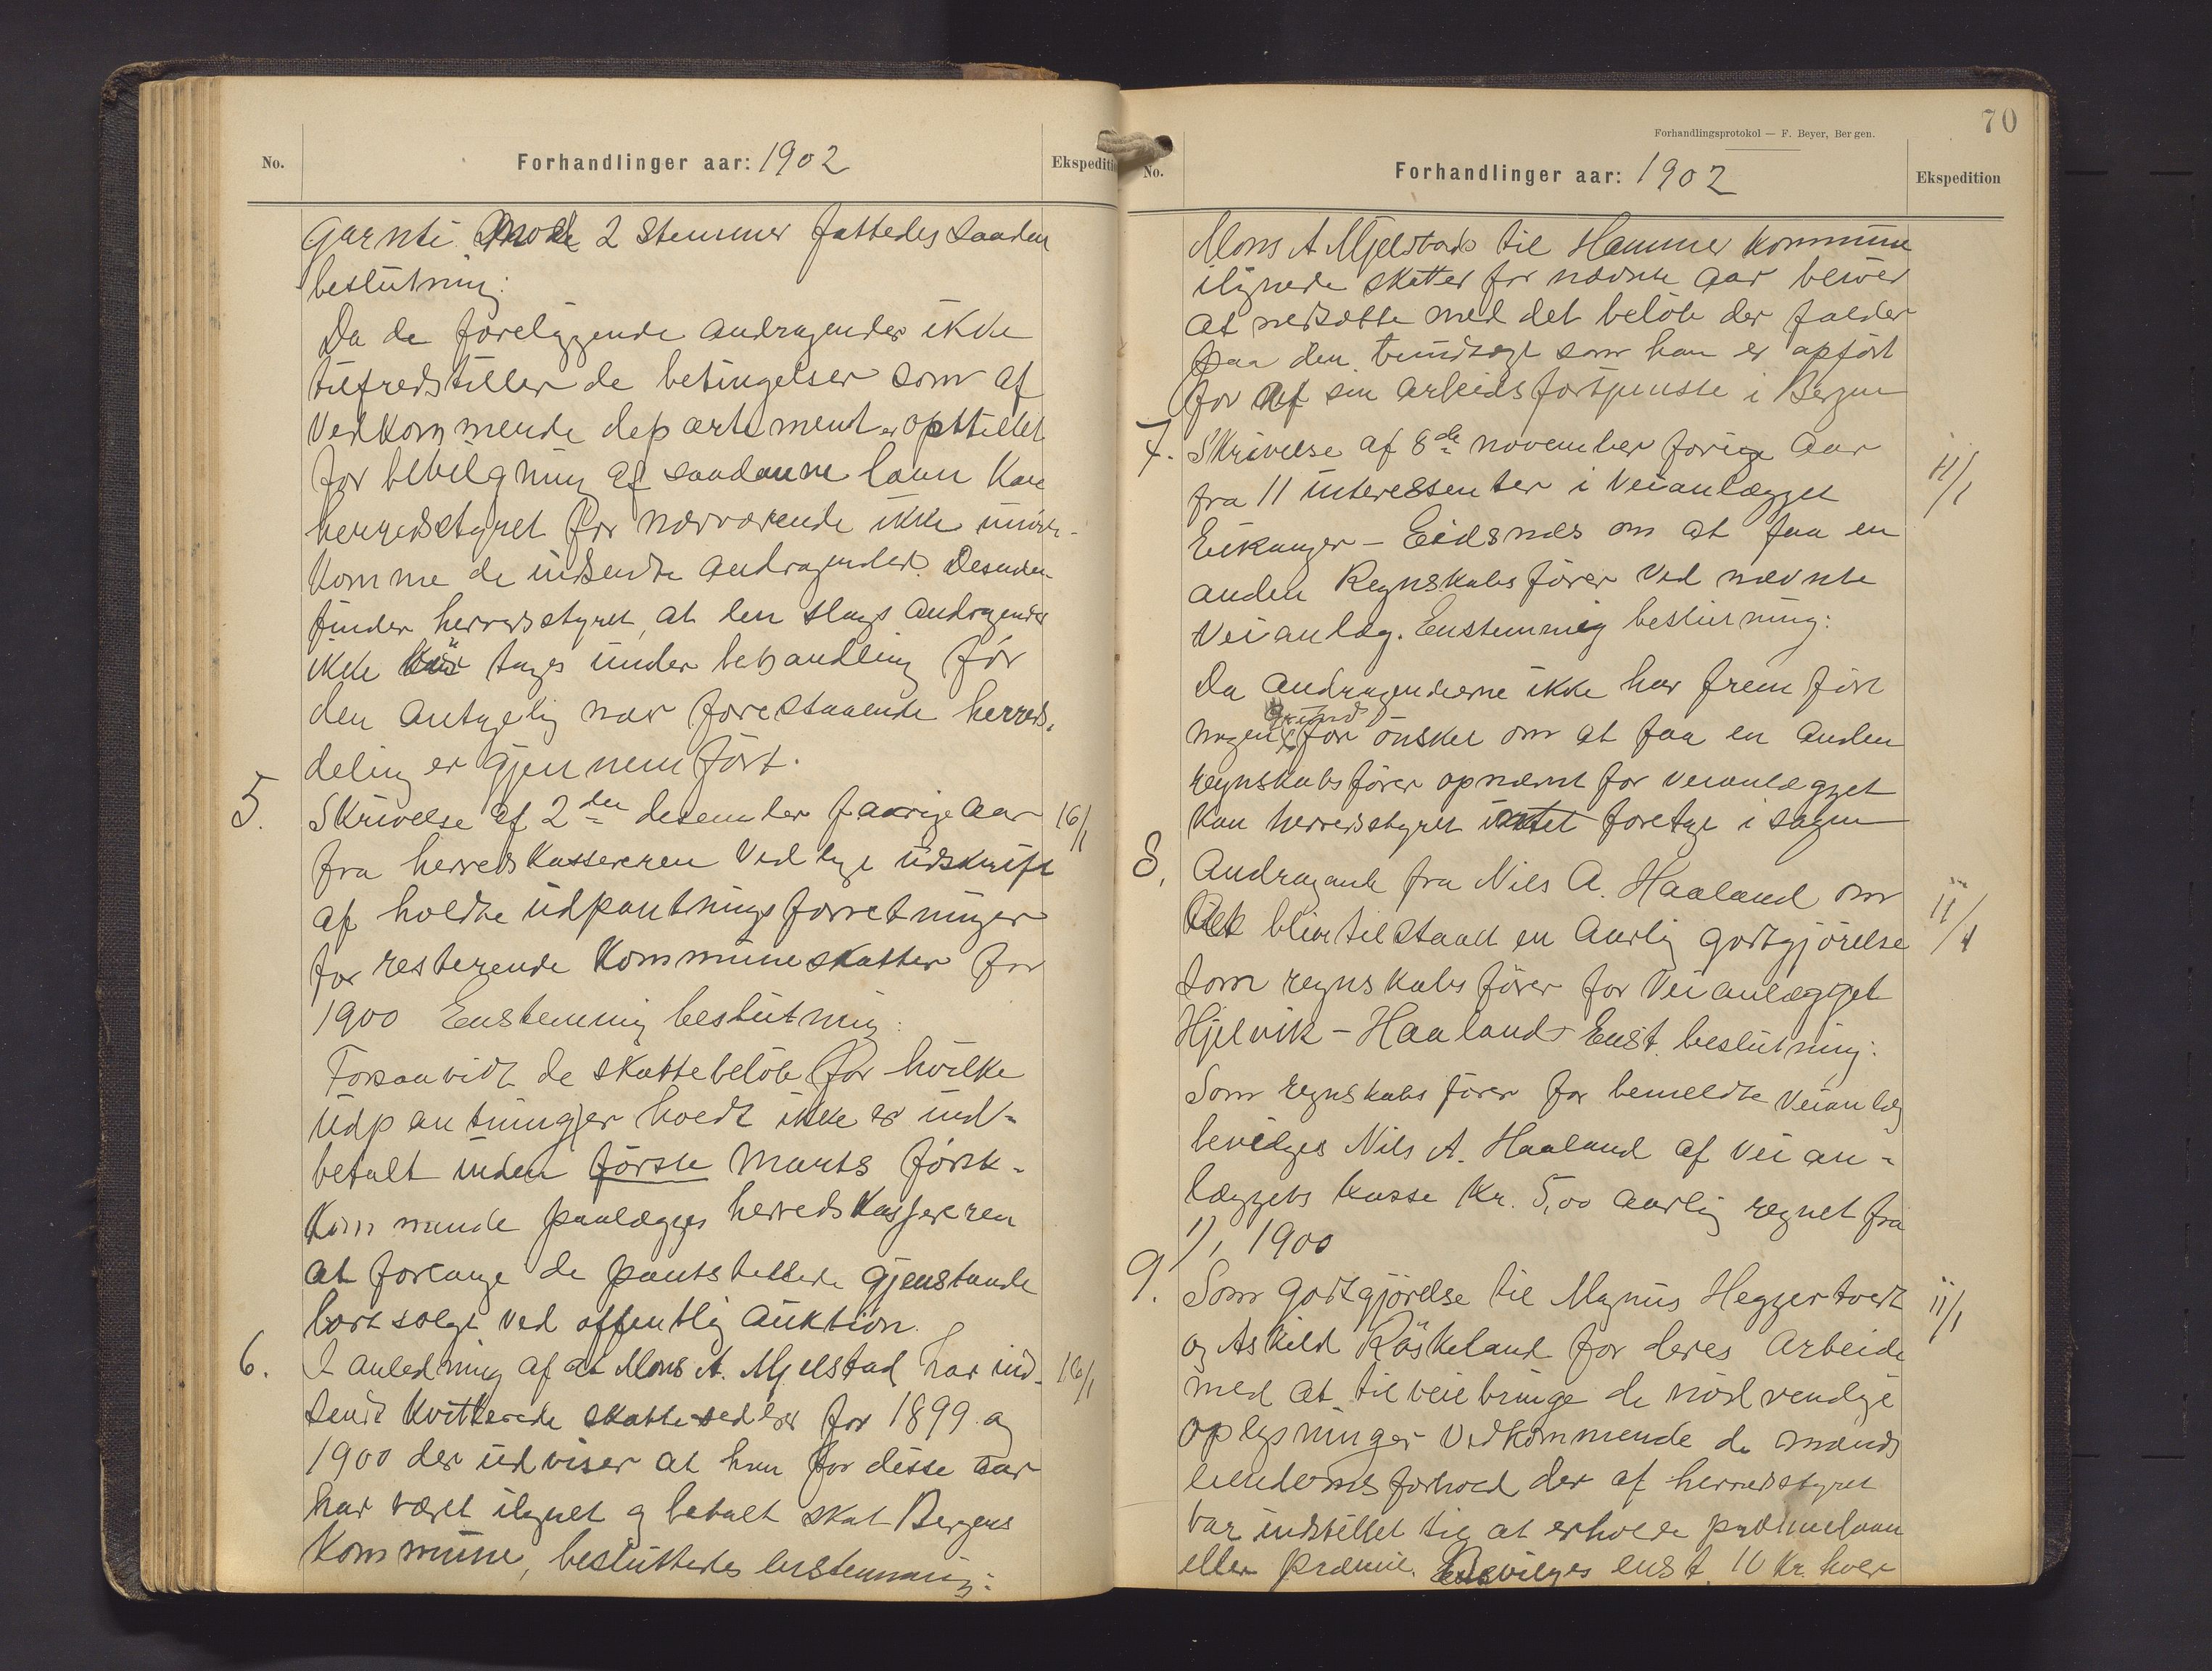 No.
Forhandlinger aar: 1902
Ekspediti
garnti. Mod 2 Stemmer fattedes saaden
beslutning:
Da de foreliggende andragender ikke
tilfredstiller de betingelser som af
Vedkommende departement er opstillet
for bevilgning af saadanne laan kan
herredsstyret for nærværende ikke imøde-
komme de indsendte andragender. Desuden
finder herredsstyret, at den slags andragender
ikke bør tages under behandling før
den antagelig nær forestaaende herreds-
deling er gjennemført.
5.
Skrivelse af 2den desember forrige aar
16/1
fra herredskassereren vedlagt udskrift
af holdte udpantningsforretninger
for resterende Kommuneskatter for
1900 Enstemmig beslutning:
Forsaavidt de skattebeløb for hvilke
udpantninger holdt ikke er ind-
betalt inden første Marts først-
kommende paalægges herredskassereren
at forlange de pantstillede gjenstande
bortsolgt ved offentlig auktion.
6.
I anledning af at Mons A. Mjelstad har ind-
16/1
sendt kvitterede skattesedler for 1899 og
1900 der udviser at han for disse aar
har været ilignet og betalt skat Bergens
Kommune, besluttedes enstemmig:
70
Forhandlingsprotokol — F. Beyer, Bergen.
No.
Forhandlinger aar: 1902
Ekspedition
Mons A Mjelstads til Hammer kommune
ilignede skatter for nævnte aar bliver
at nedsætte med det beløb der falder
paa den indtægt som han er opført
for af sin arbeidsfortjenste i Bergen
7.
Skrivelse af 8de november forige aar
11/1
fra 11 interessenter i Veianlægget
Eikanger - Eidsnes om at faa en
anden Regnskabsfører ved nævnte
Veianlæg. Enstemmig beslutning:
Da andragenderne ikke har fremført
grund
nogen for ønsket om at faa en anden
regnskabsfører opnævnt for veianlægget
kan herredsstyret intet foretage i sagen
8.
Andragande fra Nils A. Haaland om
11/1
at blive tilstaaet en aarlig godtgjørelse
som regnskabsfører for Veianlægget
Hjelvik - Haaland. Enst. beslutning:
Som regnskabsfører for bemeldte veianlæg
bevilges Nils A. Haaland af veian-
læggets kasse Kr. 5,00 aarlig regnet fra
1/1 1900
9.
Som godtgjørelse til Magnus Heggertveit
11/1
og Askild Røskeland for deres arbeide
med at tilveiebringe de nødvendige
oplysninger vedkommende de mænds
eiendomsforhold der af herredsstyret
var indstillet til at erholde præmielaan
eller præmie. Bevilges enst. 10 Kr. hver